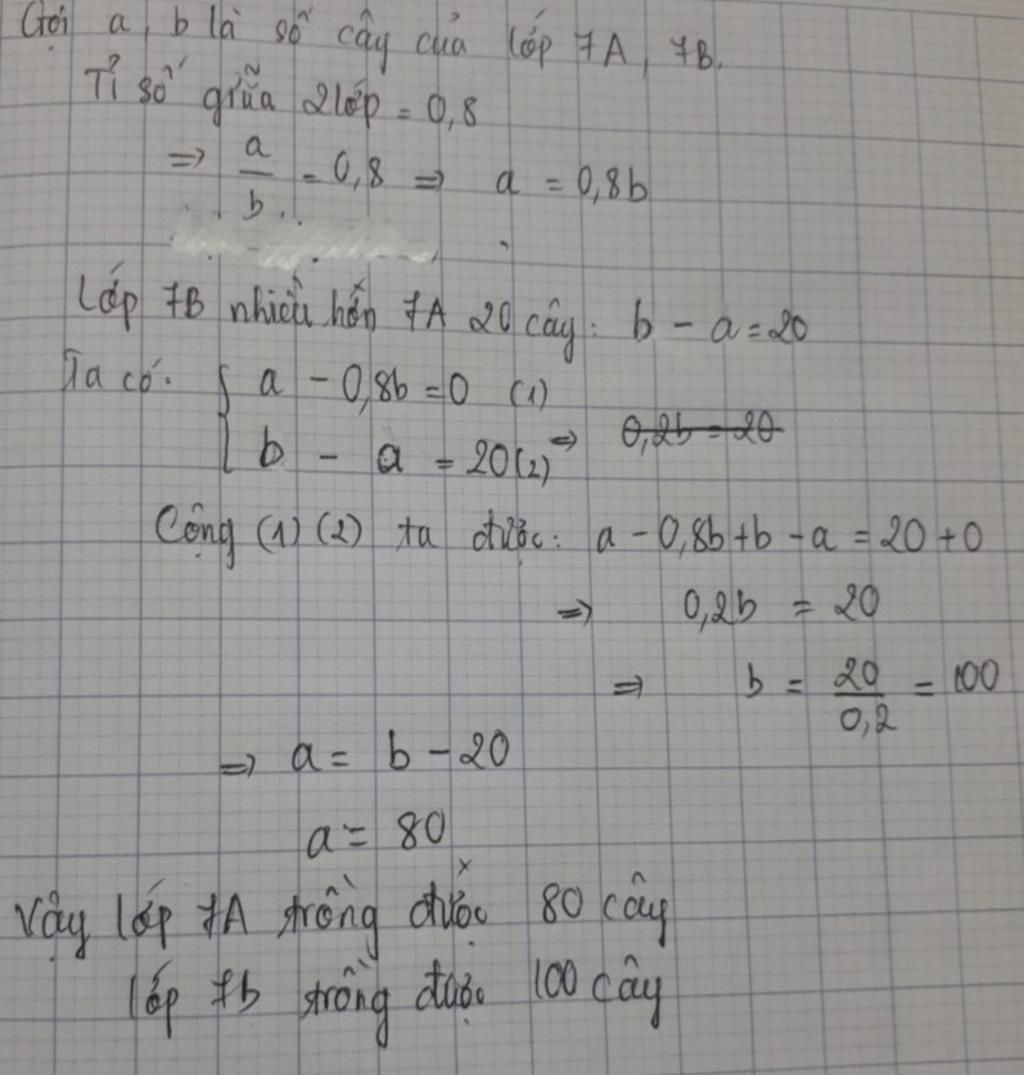 Gọi a, b là số cây của lớp 7A, 7B.
Tỉ số giữa 2 lớp = 0,8
=> a/b = 0,8 => a = 0,8b
Lớp 7B nhiều hơn 7A 20 cây: b - a = 20
Ta có: { a - 0,8b = 0 (1)
b - a = 20 (2) => 0,2b = 20
Cộng (1) (2) ta được: a - 0,8b + b - a = 20 + 0
=> 0,2b = 20
=> b = 20/0,2 = 100
=> a = b - 20
a = 80
Vậy lớp 7A trồng được 80 cây
lớp 7b trồng được 100 cây